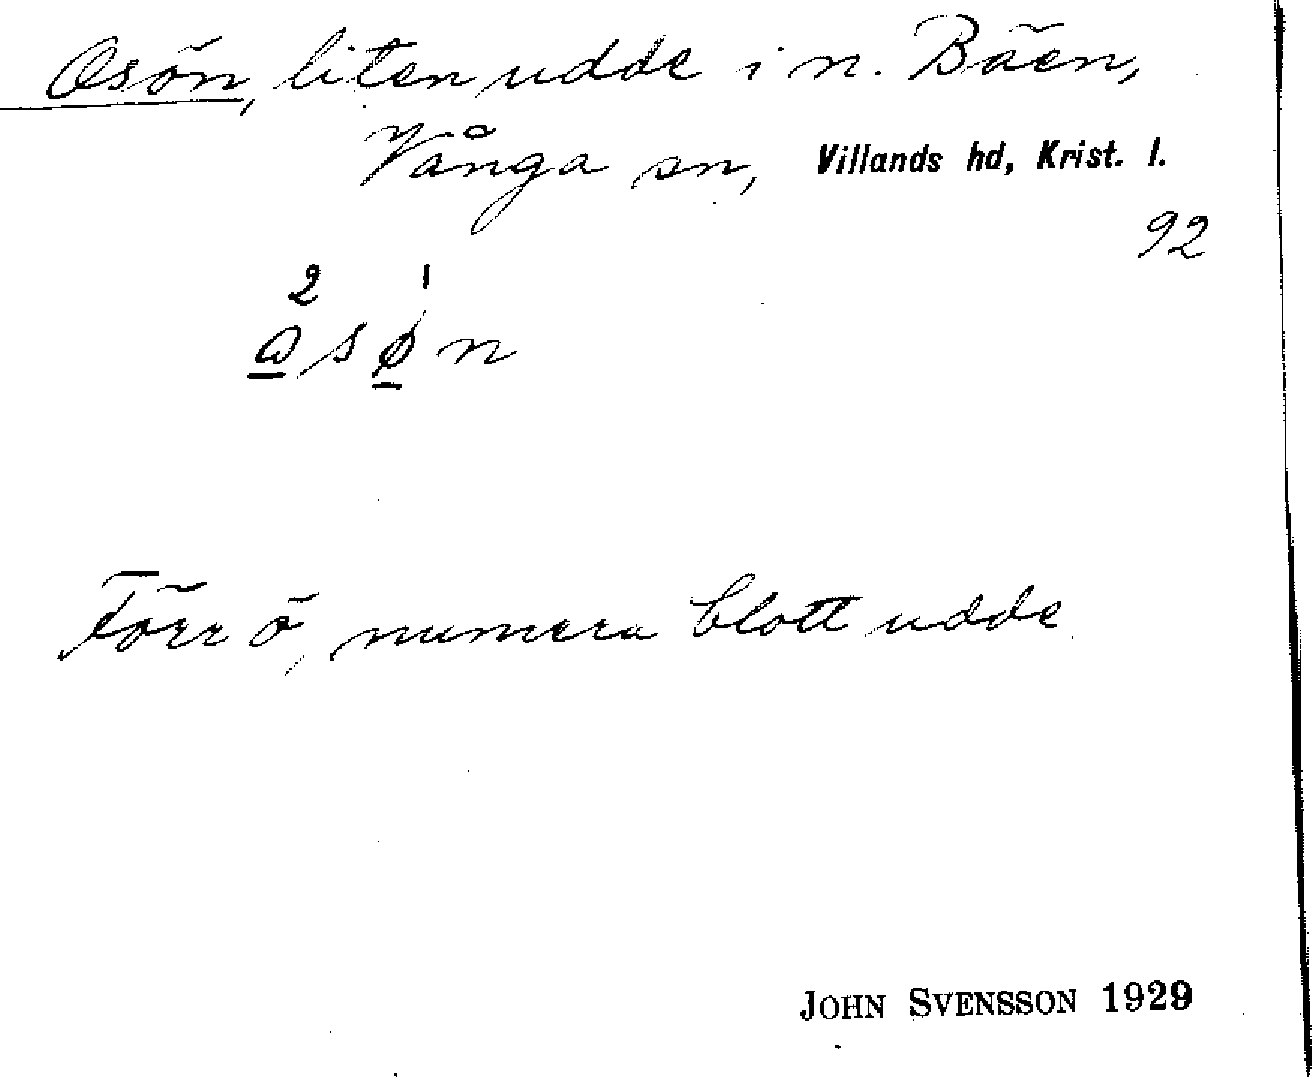 Osön, liten udde i n. Bäen,
Vånga sn, Villands hd, Krist. l.
92
2 1
a̲sø̲n
Förr ö, numera blott udde
JOHN SVENSSON 1929